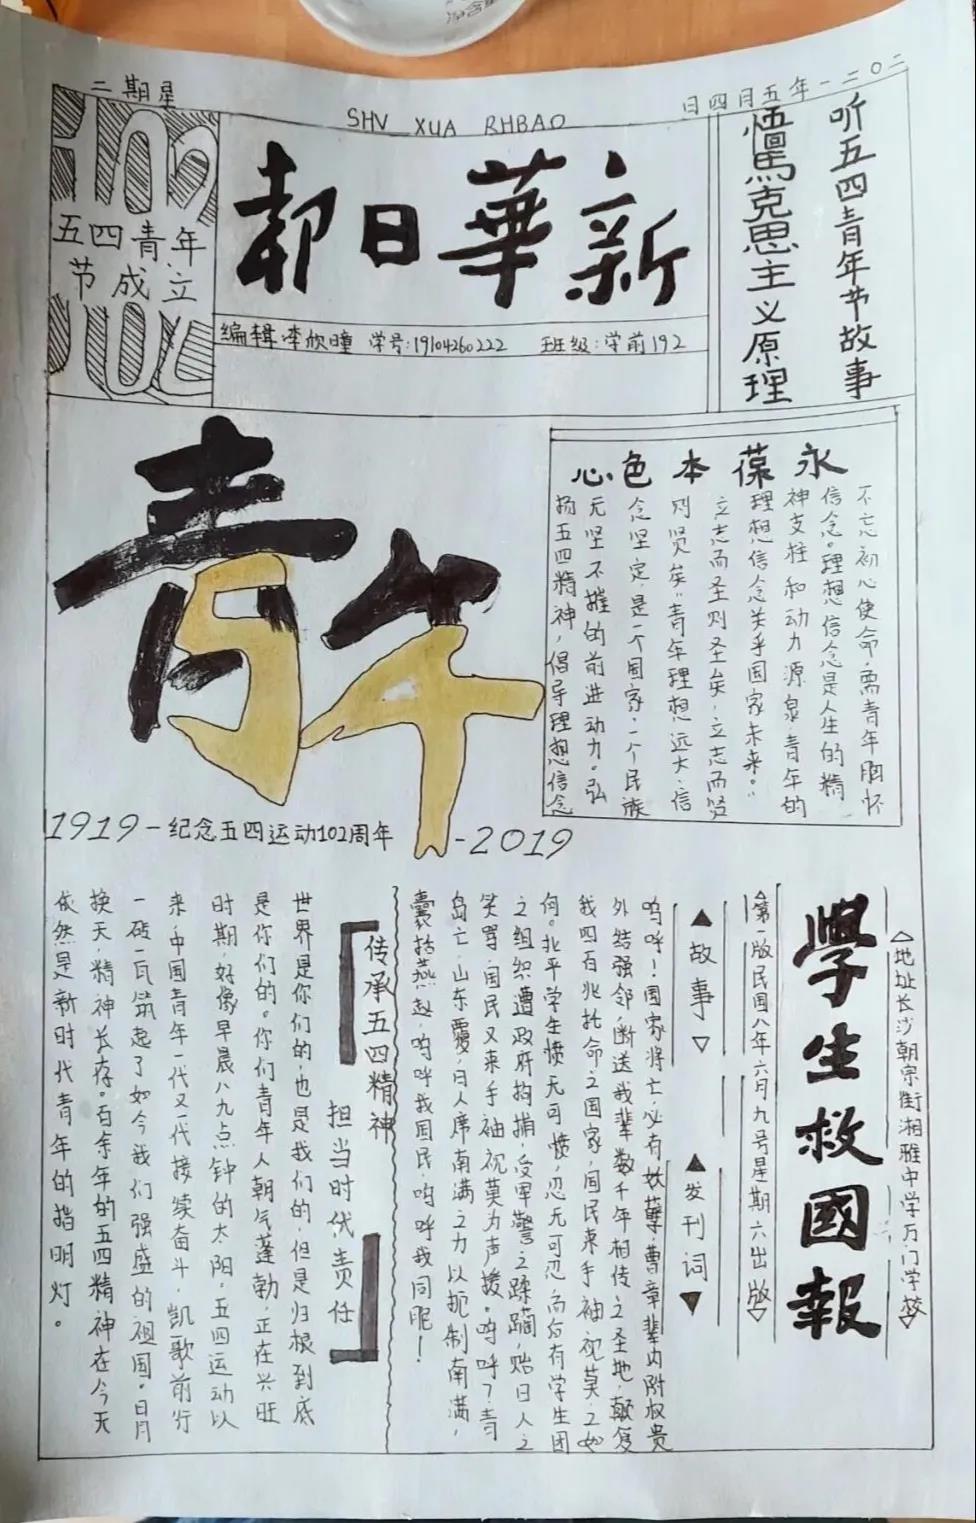 二〇二一年五月四日
SHV XUA RHBAO
星期二
听五四青年节故事
悟马克思主义原理
新華日報
编辑李欣瞳 学号:19104260222 班级:学前192
102
五四青年
节成立
102
青年
1919-纪念五四运动102周年-2019
永葆本色心
不忘初心使命,需青年胸怀
信念。理想信念是人生的精
神支柱和动力源泉,青年的
理想信念关乎国家未来。“
立志而圣则圣矣,立志而贤
则贤矣”青年理想远大、信
念坚定是一个国家、一个民族
无坚不摧的前进动力。弘
扬五四精神,倡导理想信念
△地址长沙朝宗街湘雅中学万门学校▽
學生救國報
△第一版民国八年六月九号星期六出版▽
▲故事▽
▲发刊词▼
呜呼!国家将亡,必有妖孽,曹章辈内附权贵
外结强邻,断送我辈数千年相传之圣地,颠复
我四百兆托命之国家,国民束手袖视莫之如
何。北平学生愤无可愤,忍无可忍,向有学生团
之组织遭政府拘捕,受军警之蹂躏,贻日人之
笑骂,国民又束手袖视莫为声援。呜呼?青
岛亡,山东覆,日人席南满之力以扼制南满,
囊括燕赵,呜呼我国民,呜呼我同胞!
传承五四精神
担当时代责任
世界是你们的,也是我们的,但是归根到底
是你们的。你们青年人朝气蓬勃,正在兴旺
时期,好像早晨八九点钟的太阳,五四运动以
来,中国青年一代又一代接续奋斗,凯歌前行
一砖一瓦筑起了如今我们强盛的祖国。日月
换天,精神长存。百余年的五四精神在今天
依然是新时代青年的指明灯。